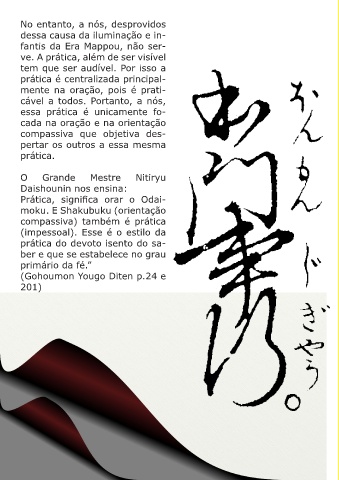 No entanto, a nós, desprovidos
dessa causa da iluminação e in-
fantis da Era Mappou, não ser-
ve. A prática, além de ser visível
tem que ser audível. Por isso a
prática é centralizada principal-
mente na oração, pois é prati-
cável a todos. Portanto, a nós,
essa prática é unicamente fo-
cada na oração e na orientação
compassiva que objetiva des-
pertar os outros a essa mesma
prática.
O Grande Mestre Nitiryu
Daishounin nos ensina:
Prática, significa orar o Odai-
moku. E Shakubuku (orientação
compassiva) também é prática
(impessoal). Esse é o estilo da
prática do devoto isento do sa-
ber e que se estabelece no grau
primário da fé.”
(Gohoumon Yougo Diten p.24 e
201)
おんもん じぎやう